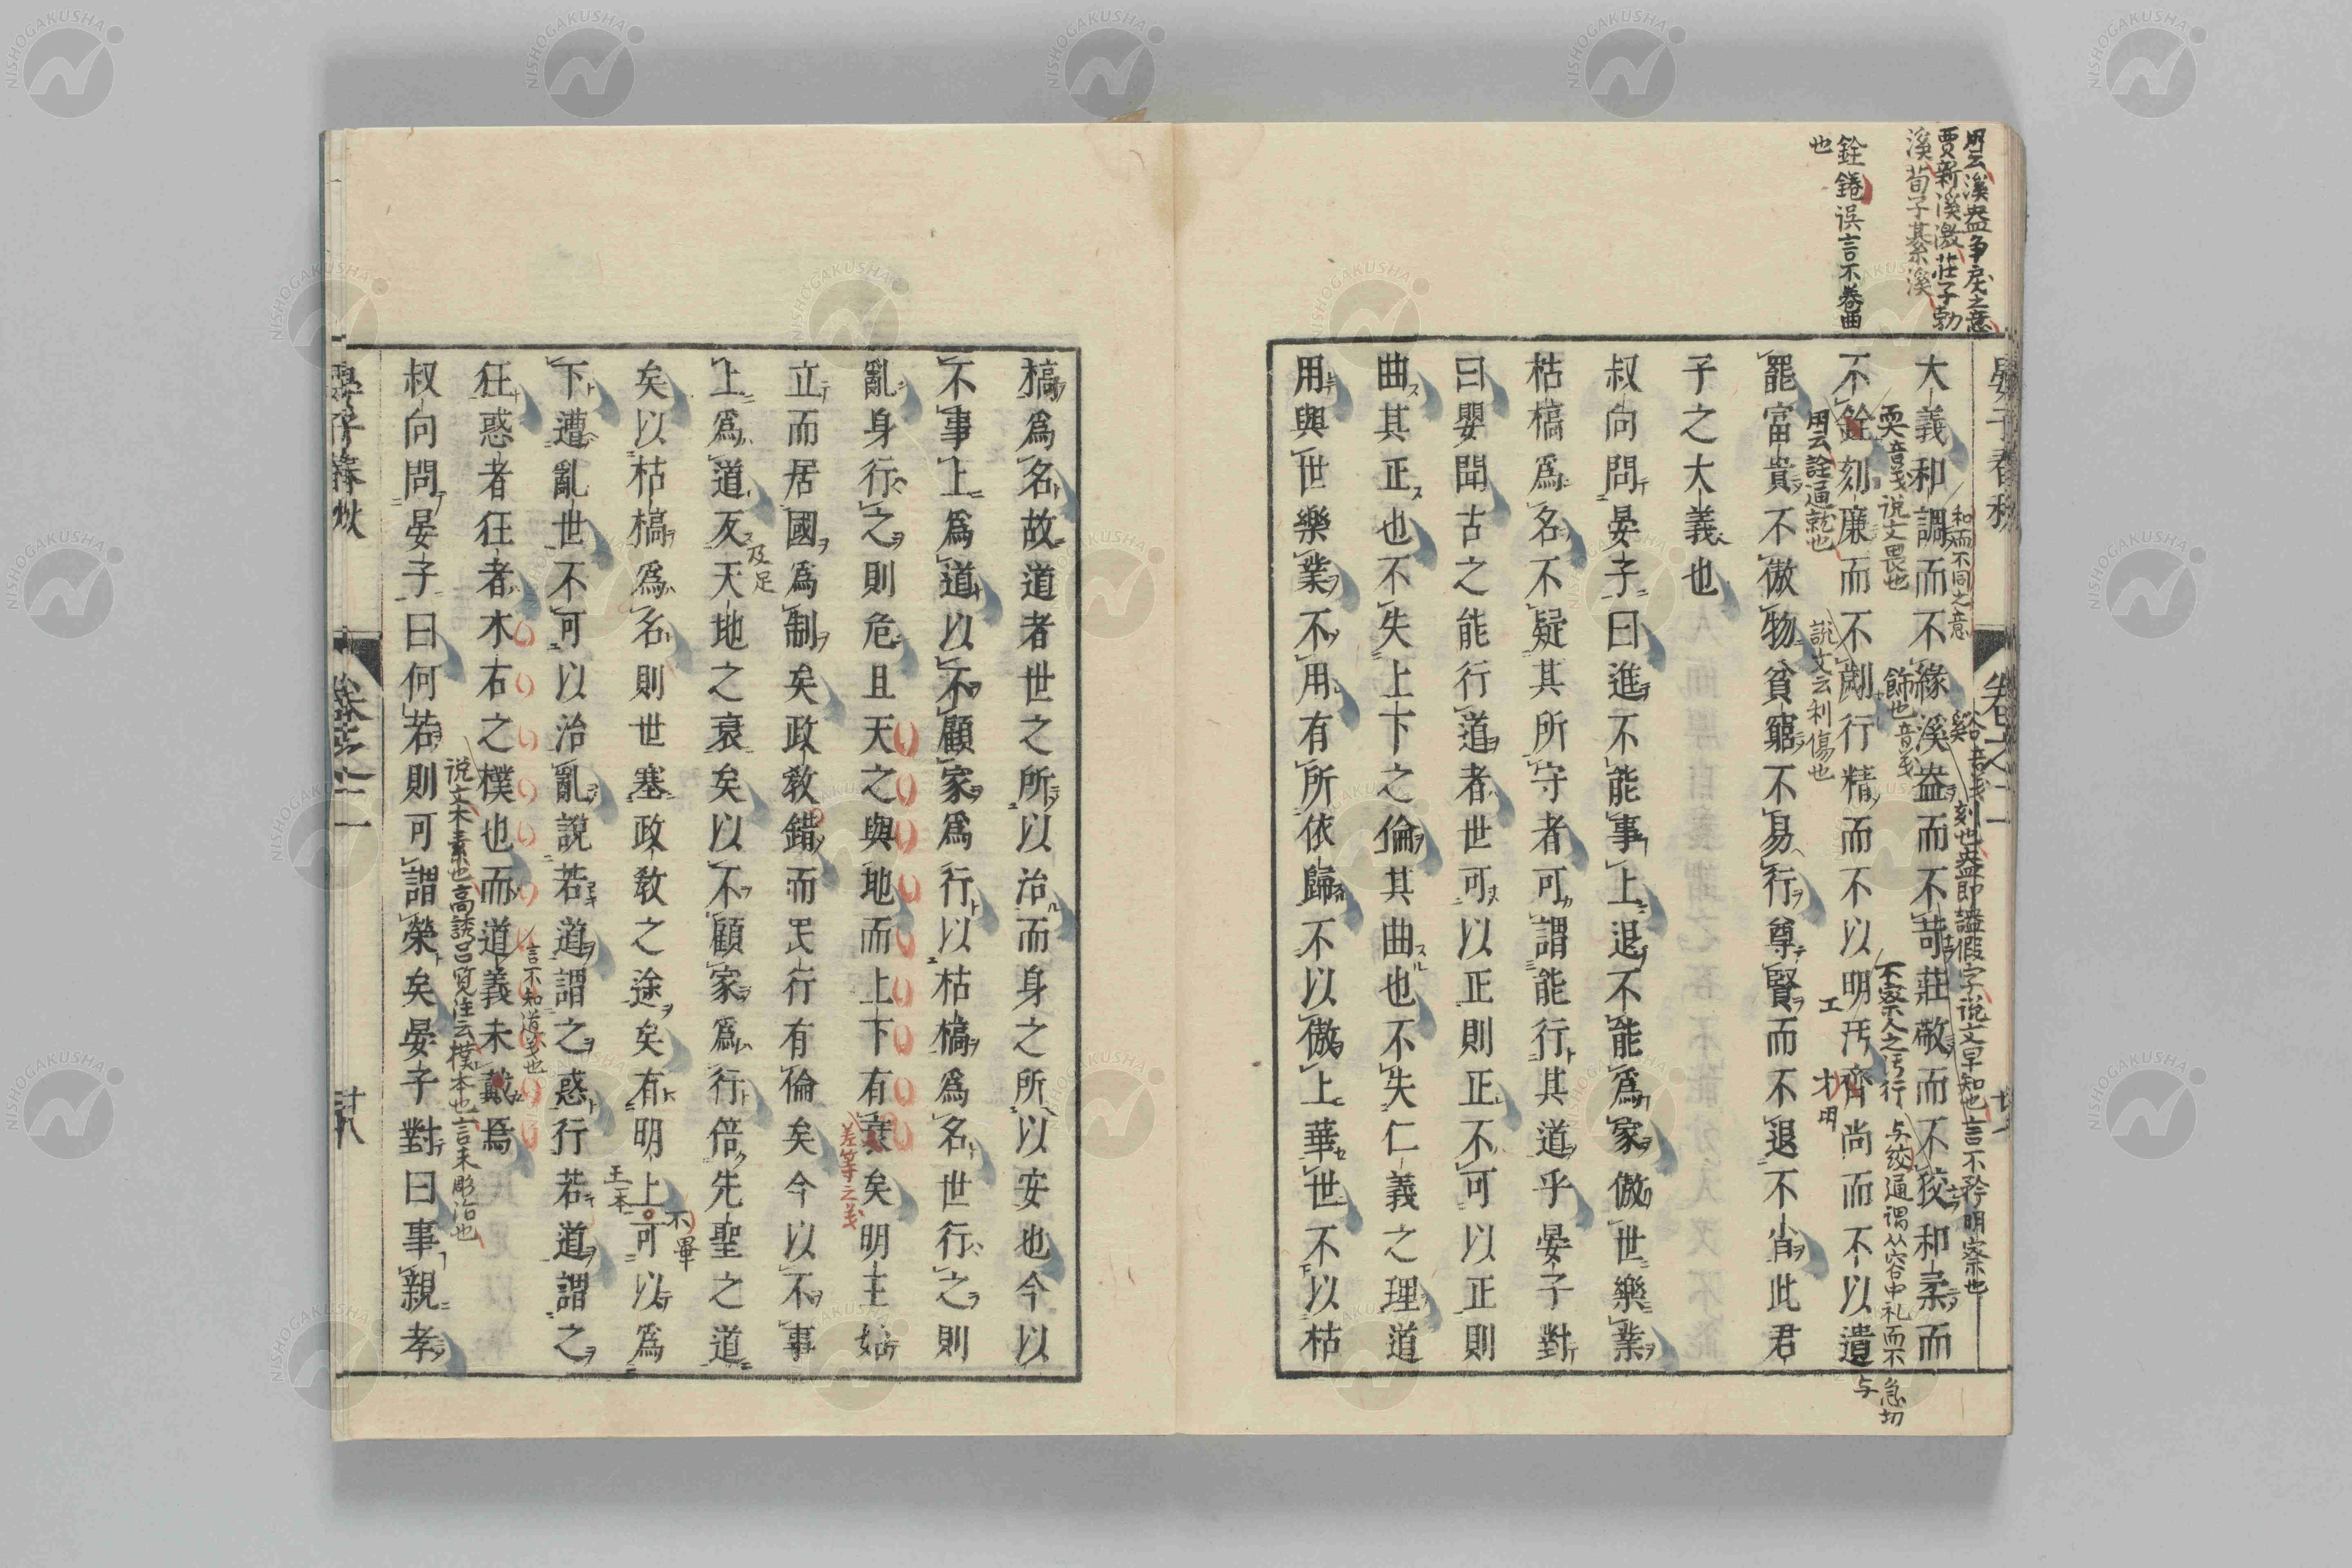 用云溪盎争戾之意
賈新溪激莊子勃
溪荀子綦溪
銓錈误言不卷曲
也
大義和調而不緣溪盎而不苛莊敬而不狡和柔而
和而不同之意
刻也盎即謚假字说文早知也言不矜明察也
耎音义说文畏也
飾也音义
不察人之污行
与绞通谓从容中礼而不
急切
不銓刻廉而不劌行精而不以明汚齊尚而不以遺
用云詮通就也
説文云利傷也
罷富貴不傲物貧窮不易行尊賢而不退不肖此君
子之大義也
叔向問晏子曰進不能事上退不能爲家傲世樂業
枯槁爲名不疑其所守者可謂能行其道乎晏子對
曰嬰聞古之能行道者世可以正則正不可以正則
曲其正也不失上下之倫其曲也不失仁義之理道
用與世樂業不用有所依歸不以傲上華世不以枯
槁爲名故道者世之所以治而身之所以安也今以
不事上爲道以不顧家爲行以枯槁爲名世行之則
亂身行之則危且天之與地而上下有衰矣明王始
差等之义
立而居國爲制矣政敎錯而民行有倫矣今以不事
上爲道反天地之衰矣以不顧家爲行倍先聖之道
及足
矣以枯槁爲名則世塞政敎之途矣有明上可以爲
不畢
王本
下遭亂世不可以治亂說若道謂之惑行若道謂之
狂惑者狂者木石之樸也而道義未戴焉
言不知道义也
说文木素也高誘呂览注云樸本也言未彫治也
叔向問晏子曰何若則可謂榮矣晏子對曰事親孝